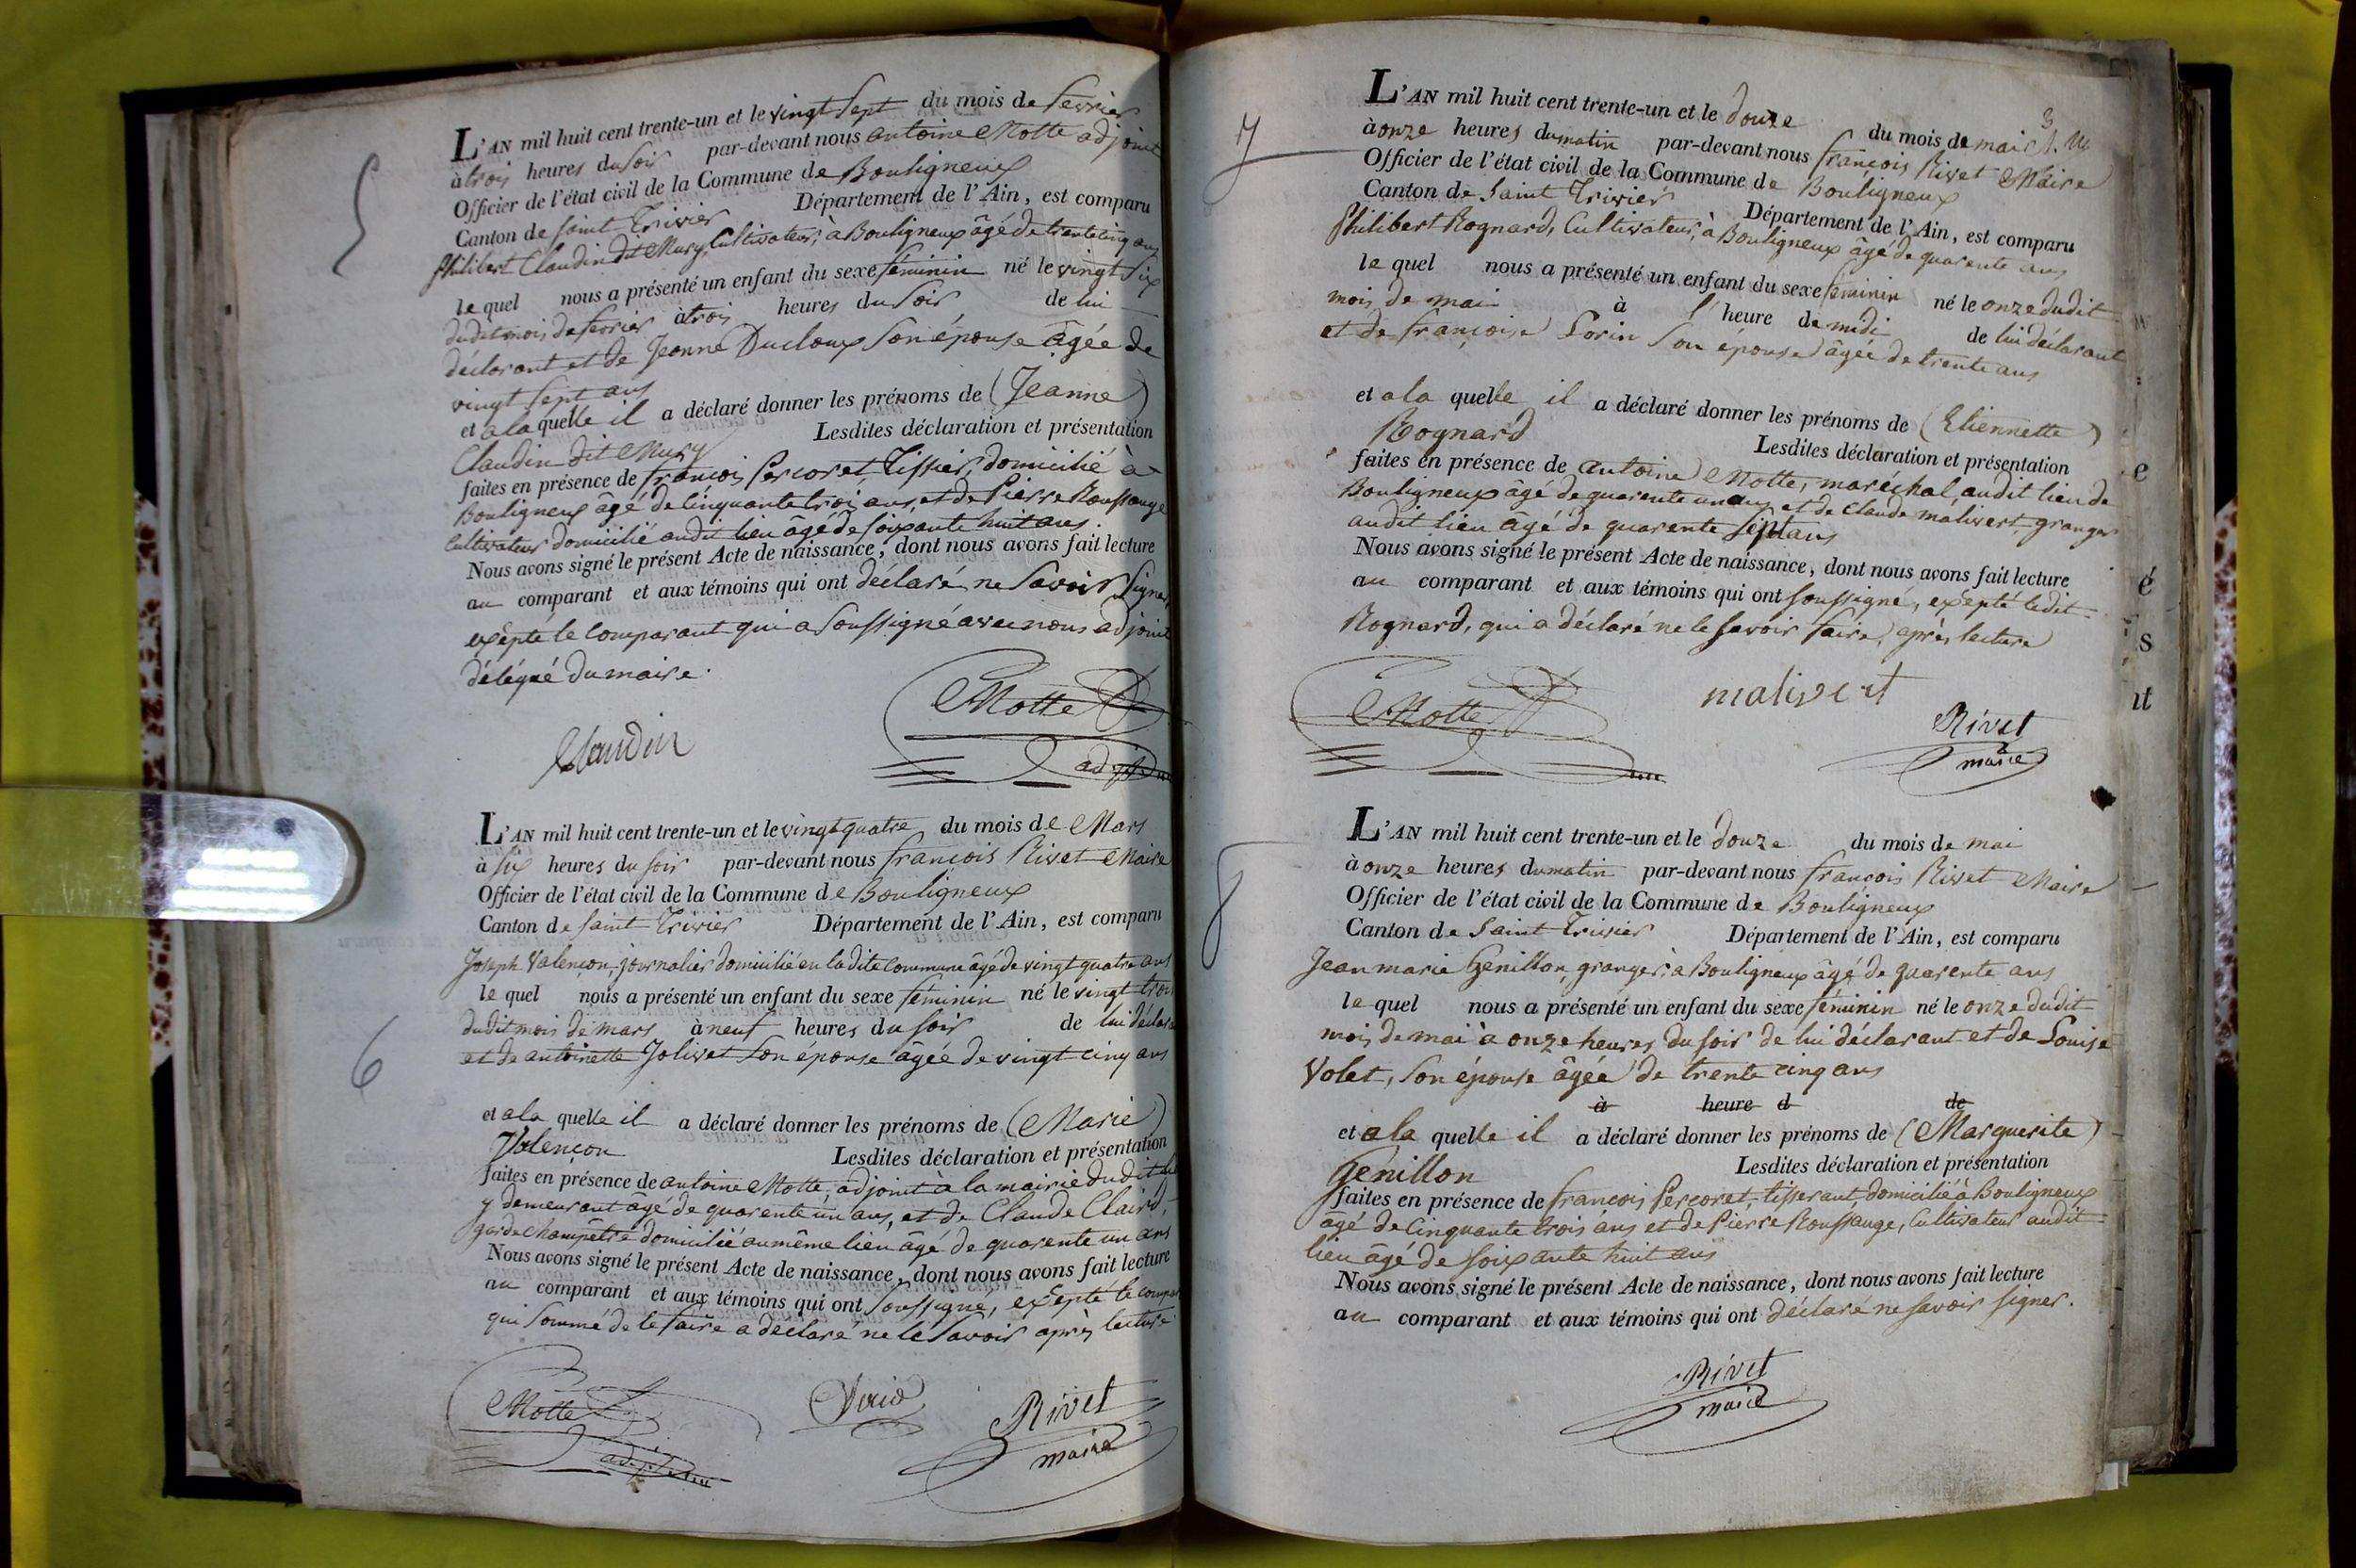 5
L'AN mil huit cent trente-un et le vingt sept du mois de fevrier
à trois heures du soir par-devant nous antoine Motte adjoint
Officier de l'état civil de la Commune de Bouligneux
Canton de saint Trivier Département de l'Ain, est comparu
philibert Claudin dit Mury, Cultivateur, à Bouligneux âgé de trente cinq ans
le quel nous a présenté un enfant du sexe féminin né le vingt six
dudit mois de fevrier à trois heures du soir de lui
déclarant et de Jeanne Ducloux son épouse âgée de
vingt sept ans
et a la quelle il a déclaré donner les prénoms de (Jeanne)
Claudin dit Mury Lesdites déclaration et présentation
faites en présence de françois Percoret, Tissier, domicilié à
Bouligneux âgé de Cinquante trois ans, et de Pierre Roussange
Cultivateur domicilié audit lieu âgé de soixante huit ans.
Nous avons signé le présent Acte de naissance, dont nous avons fait lecture
au comparant et aux témoins qui ont déclaré ne savoir signer,
exèpté le comparant qui a soussigné avec nous adjoint
délégué du maire.
Claudin Motte
adjt
6
L'AN mil huit cent trente-un et le vingt quatre du mois de Mars
à six heures du soir par-devant nous françois Rivet Maire
Officier de l'état civil de la Commune de Bouligneux
Canton de saint Trivier Département de l'Ain, est comparu
Joseph Valençon, journalier domicilié en la dite commune âgé de vingt quatre ans
le quel nous a présenté un enfant du sexe féminin né le vingt trois
dudit mois de mars à neuf heures du soir de lui déclarant
et de antoinette Jolivet son épouse âgée de vingt cinq ans
et a la quelle il a déclaré donner les prénoms de (Marie)
Valençon Lesdites déclaration et présentation
faites en présence de antoine Motte, adjoint à la mairie dudit lieu
y demeurant âgé de quarente un ans, et de Claude Claird,
garde champêtre domicilié au même lieu âgé de quarente un ans
Nous avons signé le présent Acte de naissance, dont nous avons fait lecture
au comparant et aux témoins qui ont soussigné, exèpté le compar
qui sommé de le faire a déclaré ne le savoir après lecture
Motte Rivet
maire
3
7
L'AN mil huit cent trente-un et le douze du mois de mai
à onze heures du matin par-devant nous françois Rivet Maire
Officier de l'état civil de la Commune de Bouligneux
Canton de Saint Trivier Département de l'Ain, est comparu
Philibert Rognard, Cultivateur, à Bouligneux âgé de quarente ans
le quel nous a présenté un enfant du sexe féminin né le onze dudit
mois de mai à l'heure de midi de lui déclarant
et de françoise Lorin son épouse âgée de trente ans
et a la quelle il a déclaré donner les prénoms de (Etiennette)
Rognard Lesdites déclaration et présentation
faites en présence de antoine Motte, maréchal, audit lieu de
Bouligneux âgé de quarente un ans, et de Claude malivert, granger
audit lieu âgé de quarente sept ans
Nous avons signé le présent Acte de naissance, dont nous avons fait lecture
au comparant et aux témoins qui ont soussigné, exèpté ledit
Rognard, qui a déclaré ne le savoir faire, après lecture
Motte malivert Rivet
maire
8
L'AN mil huit cent trente-un et le douze du mois de mai
à onze heures du matin par-devant nous françois Rivet Maire
Officier de l'état civil de la Commune de Bouligneux
Canton de Saint Trivier Département de l'Ain, est comparu
Jean marie Génillon, granger, a Bouligneux âgé de quarente ans
le quel nous a présenté un enfant du sexe féminin né le onze dudit
mois de mai à onze heures du soir de lui déclarant et de Louise
Volet, son épouse âgée de trente cinq ans
à heure d de
et a la quelle il a déclaré donner les prénoms de (Marguerite)
Génillon Lesdites déclaration et présentation
faites en présence de françois Percoret, tisserant, domicilié à Bouligneux
âgé de Cinquante trois ans et de Pierre Roussange, Cultivateur audit
lieu âgé de soixante huit ans
Nous avons signé le présent Acte de naissance, dont nous avons fait lecture
au comparant et aux témoins qui ont déclaré ne savoir signer.
Rivet
maire